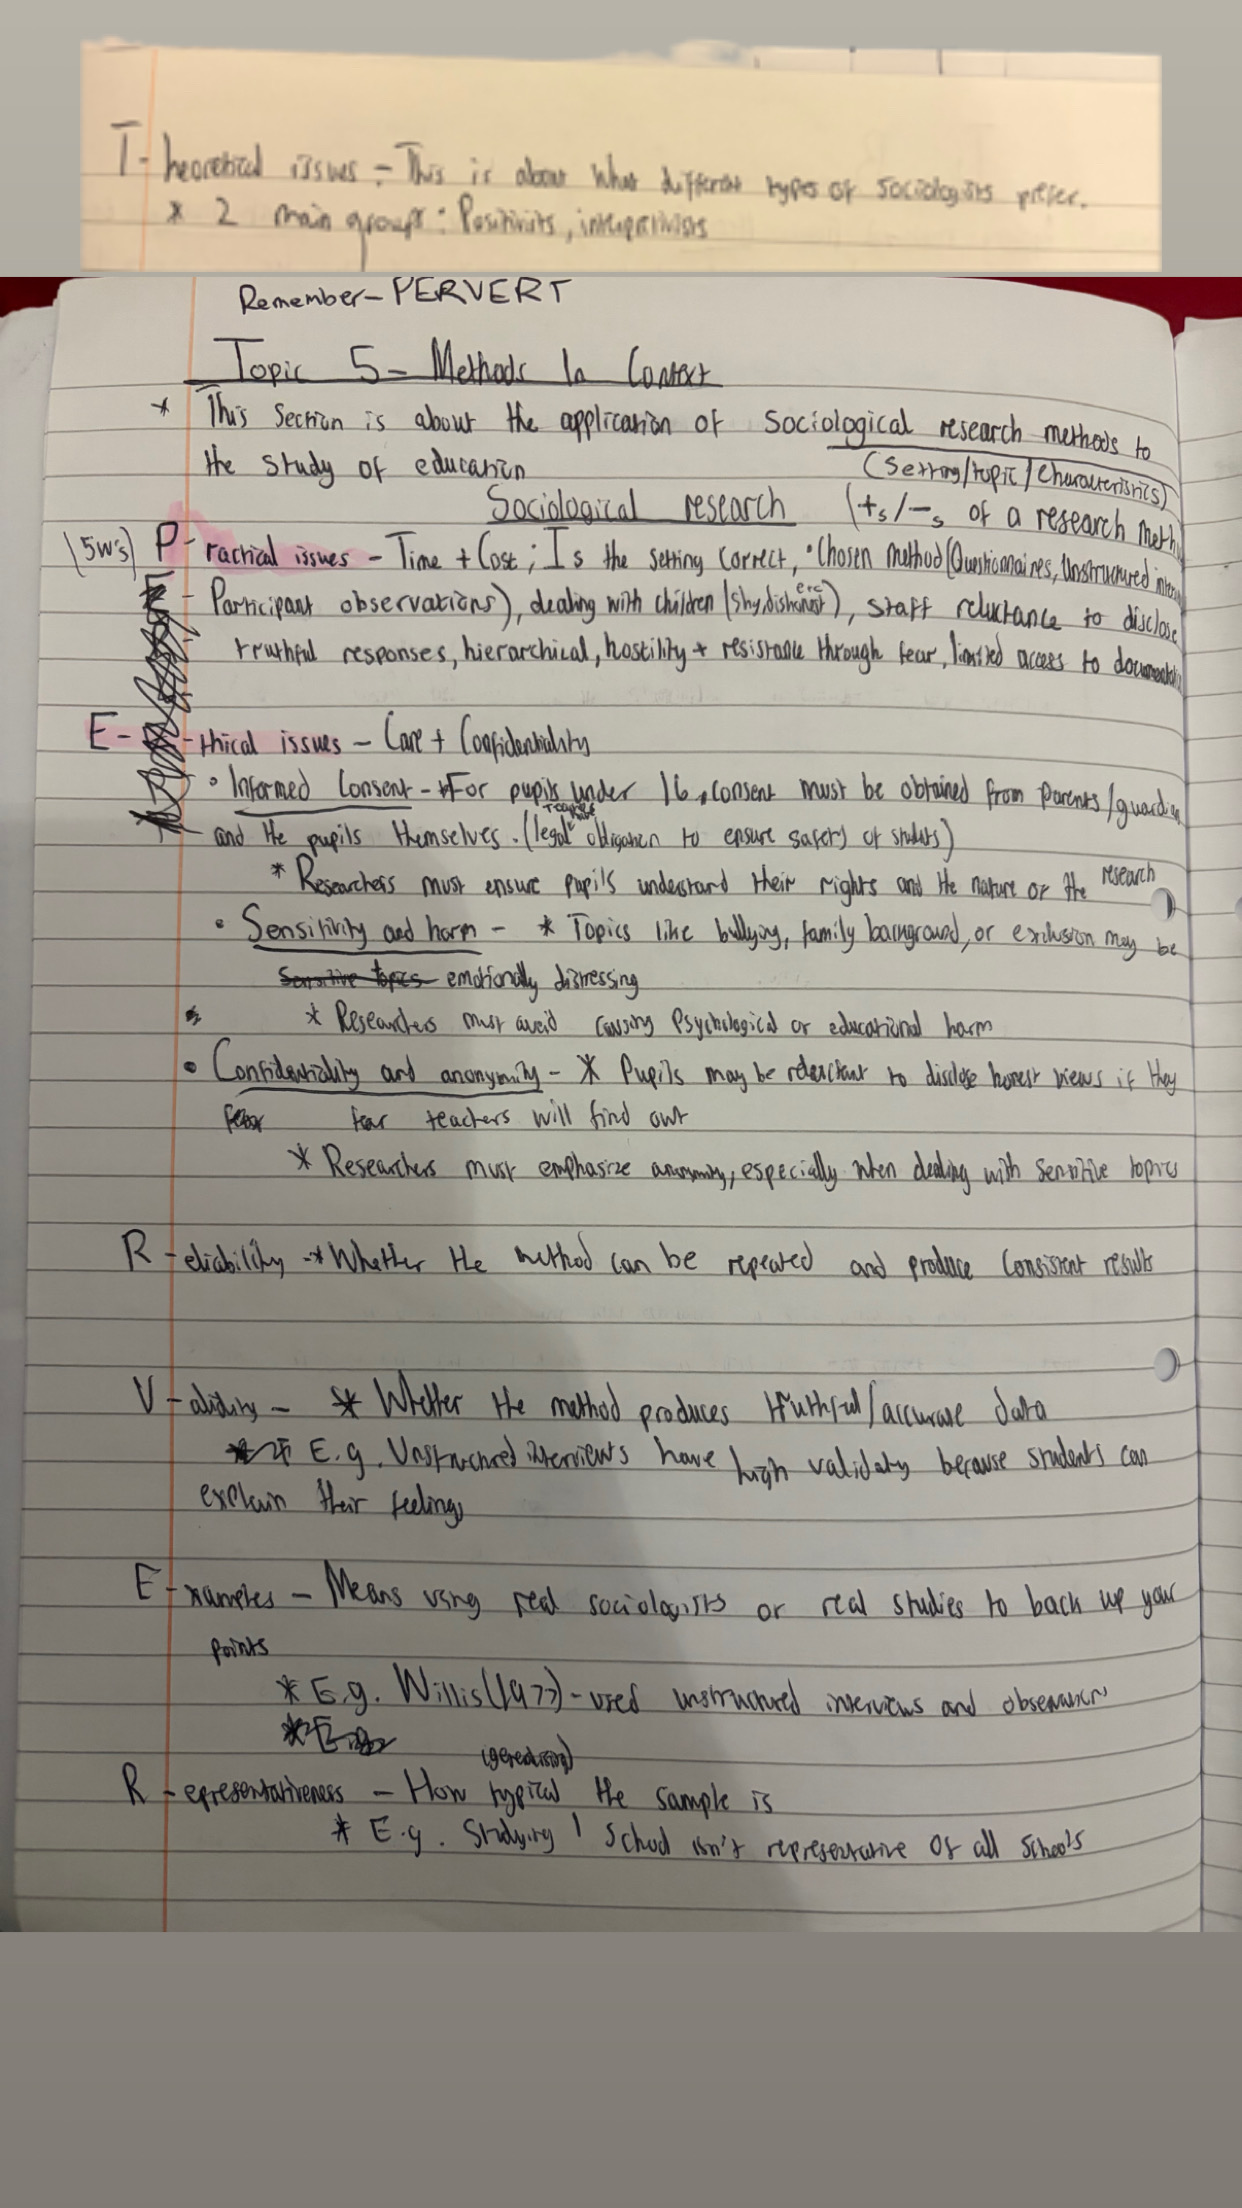 T- heoretical issues - This is about what different types of sociologists prefer.
* 2 main groups: Positivists, interpretivists
Remember- PERVERT
Topic 5- Methods In Context
* This section is about the application of sociological research methods to
the study of education (Setting/topic/characteristics)
Sociological research (+s/-s of a research meth
(5w's) P- ractical issues - Time + Cost; Is the setting correct, • Chosen method (Questionnaires, Unstructured
- Participant observations), dealing with children (shy, dishonest etc), staff reluctance to disclose
truthful responses, hierarchical, hostility + resistance through fear, limited access to
E- -thical issues - Care + Confidentiality
• Informed Consent - For pupils under 16, consent must be obtained from parents/guardian
and the pupils themselves. (legal obligation to ensure safety of students)
* Researchers must ensure pupils understand their rights and the nature of the research
• Sensitivity and harm - * Topics like bullying, family background, or exclusion may be
Sensitive topics emotionally distressing
* Researchers must avoid causing psychological or educational harm
• Confidentiality and anonymity - * Pupils may be reluctant to disclose honest views if they
fear fear teachers will find out
* Researchers must emphasize anonymity, especially when dealing with sensitive topics
R - eliability -* Whether the method can be repeated and produce consistent results
V - alidity - * Whether the method produces truthful/accurate data
* E.g. Unstructured interviews have high validity because students can
explain their feelings
E - xamples - Means using real sociologists or real studies to back up your
points
* E.g. Willis (1977) - used unstructured interviews and observations
R - epresentativeness - How typical the sample is
* E.g. Studying 1 school isn't representative of all schools